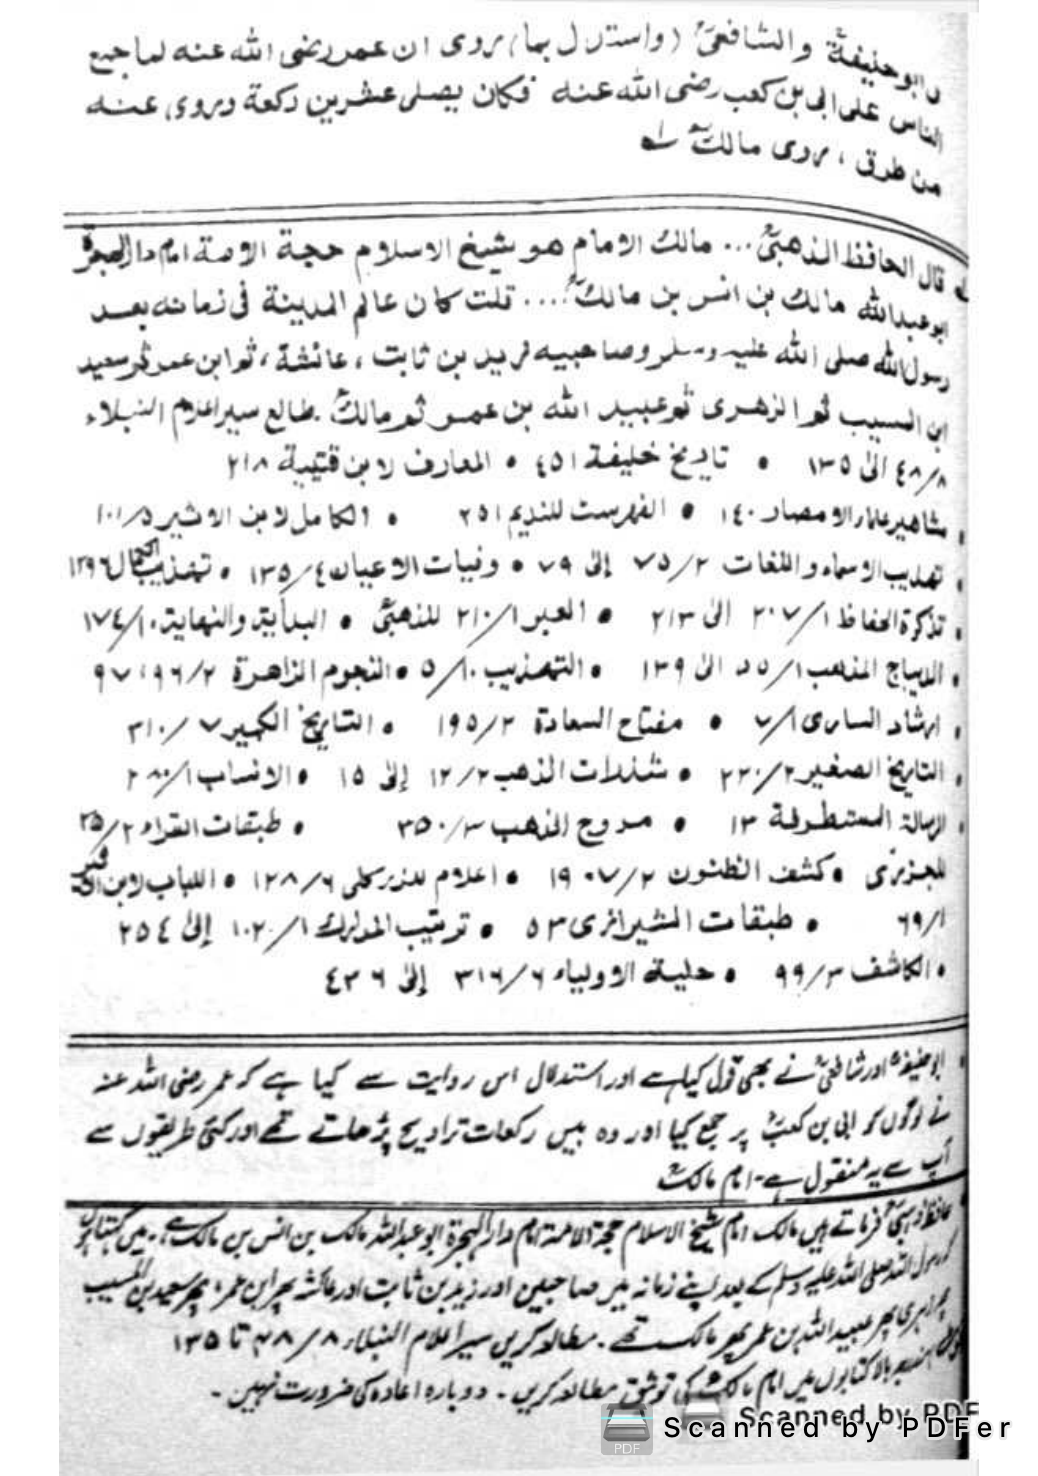 وابوحنیفةؒ والشافعیؒ (واستدل بما) روی ان عمر رضی الله عنه لما جمع
الناس علی ابی بن کعب رضی الله عنه فکان یصلی عشرین رکعة وروی عنه
من طرق ، روی مالکؒ ۱ه
قال الحافظ الذهبیؒ ... مالک الامام هو شیخ الاسلام حجة الامة امام دار الهجرة
ابو عبدالله مالک بن انس بن مالکؒ .... قلت کان عالم المدینة فی زمانه بعد
رسول الله صلی الله علیه وسلم وصاحبیه زید بن ثابت ، عائشة ، ثم ابن عمر ثم سعید
ابن المسیب ثم الزهری ثم عبید الله بن عمر ثم مالکؒ . طالع سیر اعلام النبلاء
۴۸/۸ الی ۱۳۵ • تاریخ خلیفة ۴۵۱ • المعارف لابن قتیبة ۲۱۸
• مشاهیر علماء الامصار ۱۴۰ • الفهرست للندیم ۲۵۱ • الکامل لابن الاثیر ۱۰۱/۵
• تهذیب الاسماء واللغات ۷۵/۲ إلی ۷۹ • وفیات الاعیان ۱۳۵/۴ • تهذیب الکمال ۱۲۹۶
• تذکرة الحفاظ ۲۰۷/۱ الی ۲۱۳ • العبر ۲۱۰/۱ للذهبیؒ • البدایة والنهایة ۱۷۴/۱۰
• الدیباج المذهب ۵۵/۱ الی ۱۳۹ • التهذیب ۵/۱۰ • النجوم الزاهرة ۹۶/۲ ، ۹۷
• ارشاد الساری ۷/۱ • مفتاح السعادة ۱۹۵/۲ • التاریخ الکبیر ۳۱۰/۷
• التاریخ الصغیر ۲۲۰/۲ • شذرات الذهب ۱۲/۲ إلی ۱۵ • الانساب ۲۸۰/۱
• الرسالة المستطرفة ۱۳ • مروج الذهب ۳۵۰/۳ • طبقات القراء ۳۵/۲
للجزری • کشف الظنون ۱۹۰۷/۲ • اعلام للزرکلی ۱۲۸/۶ • اللباب لابن الاثیر
۶۹/۱ • طبقات الشیرازی ۵۳ • ترتیب المدارک ۱۰۲/۱ إلی ۲۵۴
• الکاشف ۹۹/۳ • حلیة الاولیاء ۳۱۶/۶ إلی ۴۳۶
ابوحنیفہؒ اور شافعیؒ نے بھی قول کیا ہے اور استدلال اس روایت سے کیا ہے کہ عمر رضی اللہ عنہ
نے لوگوں کو ابی بن کعبؓ پر جمع کیا اور وہ بیس رکعات تراویح پڑھاتے تھے اور کئی طریقوں سے
آپ سے یہ منقول ہے۔ امام مالکؒ
حافظ ذہبیؒ فرماتے ہیں مالک امام شیخ الاسلام حجۃ الامۃ امام دار الہجرۃ ابو عبداللہ مالک بن انس بن مالک ہے۔ میں کہتا ہوں
کہ رسول اللہ صلی اللہ علیہ وسلم کے بعد اپنے زمانہ میں صاحبین اور زید بن ثابت اور عائشہ پھر ابن عمر، پھر سعید بن المسیب
پھر زہری پھر عبید اللہ بن عمر پھر مالک تھے۔ مطالعہ کریں سیر اعلام النبلاء ۴۸/۸ تا ۱۳۵
بالا کتابوں میں امام مالکؒ کی توثیق مطالعہ کریں۔ دوبارہ اعادہ کی ضرورت نہیں۔
Scanned by PDF
Scanned by PDFer
PDF